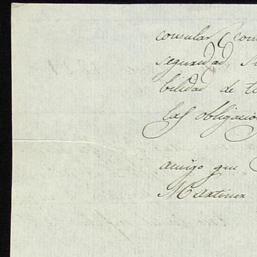 consular
seguridad,
bilidad de
las obligacio
amigo que
Martinez